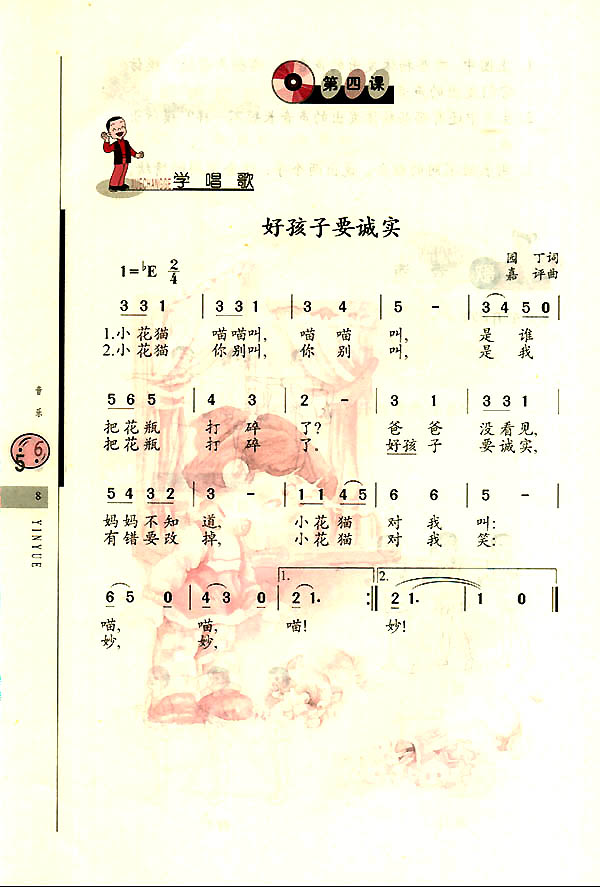 第四课
XUECHANGGE 学唱歌
好孩子要诚实
1=♭E 2/4
园 丁词
嘉 评曲
3 3 1 | 3 3 1 | 3 4 | 5 - | 3 4 5 0 |
1.小花猫 喵喵叫, 喵 喵 叫, 是 谁
2.小花猫 你别叫, 你 别 叫, 是 我
5 6 5 | 4 3 | 2 - | 3 1 | 3 3 1 |
把花瓶 打 碎 了? 爸 爸 没看见,
把花瓶 打 碎 了. 好孩 子 要诚实,
5 4 3 2 | 3 - | 1 1 4 5 | 6 6 | 5 - |
妈妈不知 道, 小花猫 对 我 叫:
有错要改 掉, 小花猫 对 我 笑:
1. 2.
6 5 0 | 4 3 0 | 2 1. :‖ 2 1. | 1 0 ‖
喵, 喵, 喵! 妙!
妙, 妙,
音乐
5 6
8
YINYUE